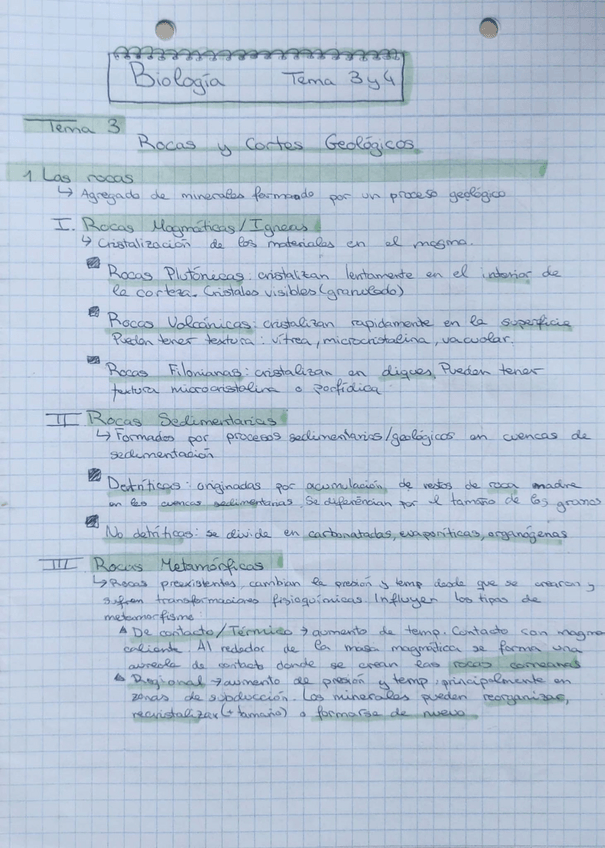 Biología Tema 3 y 4
Tema 3
Rocas y Cortes Geológicos
1 Las rocas
↳ Agregado de minerales formado por un proceso geológico
I. Rocas Magmáticas/Ígneas
↳ Cristalización de los materiales en el magma.
Rocas Plutónecas: cristalizan lentamente en el interior de
la corteza. Cristales visibles (granulado)
Rocas Volcánicas: cristalizan rapidamente en la superficie
Pueden tener textura: vítrea, microcristalina, vacuolar.
Rocas Filonianas: cristalizan en diques. Pueden tener
textura microcristalina o porfídica
II Rocas Sedimentarias
↳ Formados por procesos sedimentarios/geológicos en cuencas de
sedimentación
Detríticas: originadas por acumulación de restos de roca madre
en las cuencas sedimentarias. Se diferéncian por el tamaño de los granos
No detríticas: se divide en carbonatadas, evaporíticas, organógenas
III Rocas Metamórficas
↳ Rocas preexistentes, cambian la presión y temp desde que se crearon y
sufren transformaciones fisioquímicas. Influyen los tipos de
metamorfismo:
De contacto/Térmico → aumento de temp. Contacto con magma
caliente. Al rededor de la masa magmática se forma una
aureola de contacto donde se crean las rocas corneanas
Regional → aumento de presión y temp, principalmente en
zonas de subducción. Los minerales pueden reorganizar,
recristalizar (+ tamaño) o formarse de nuevo